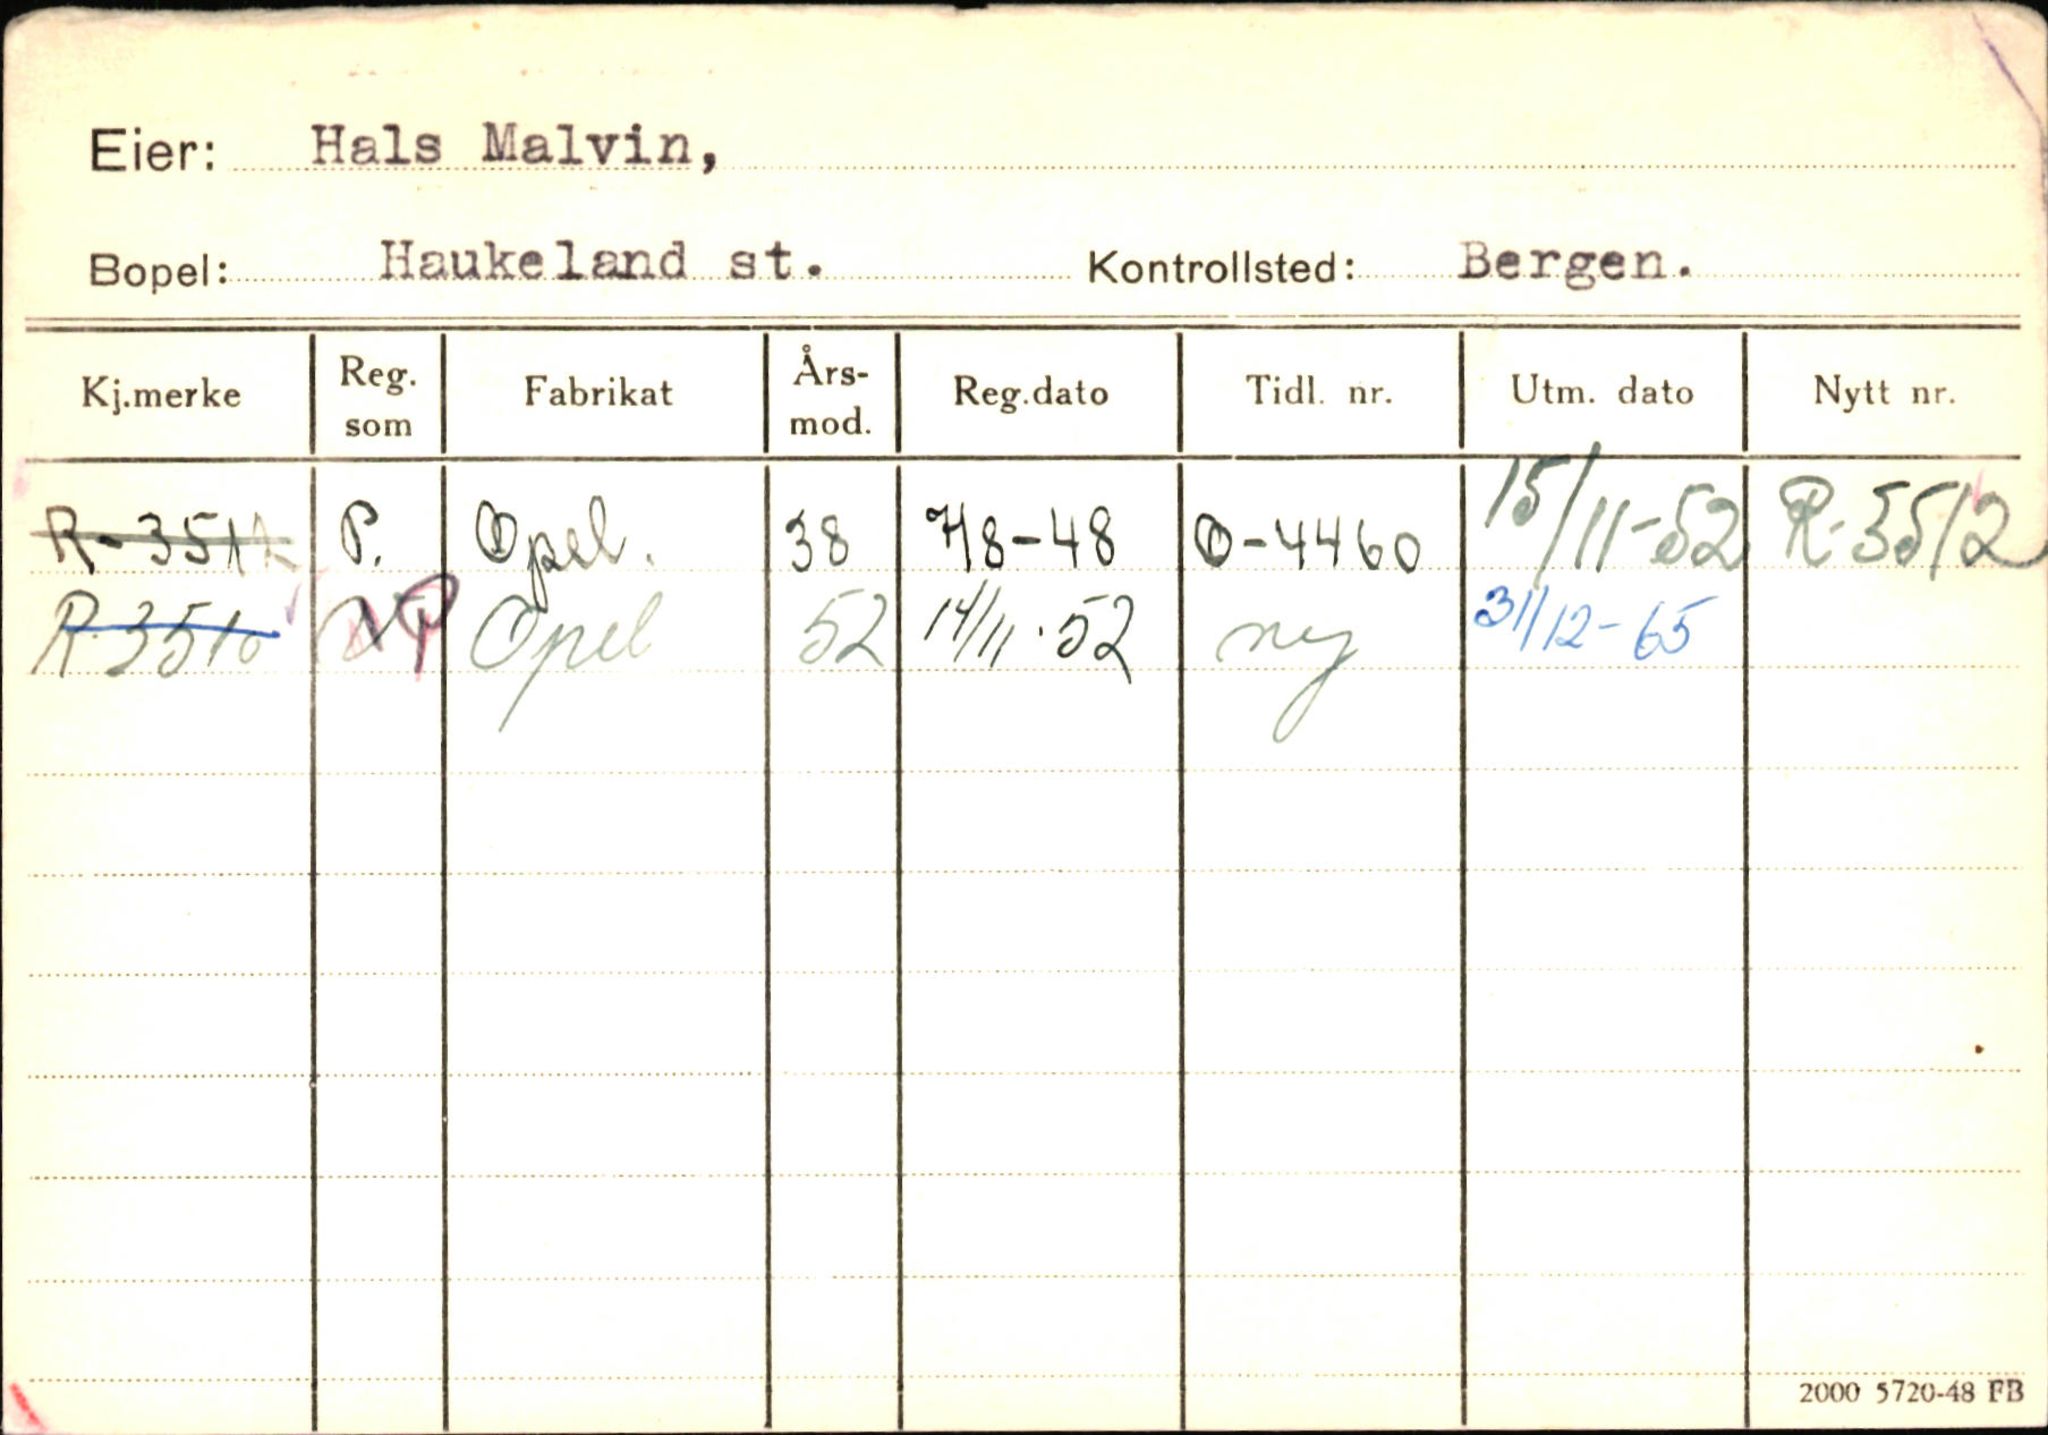 Eier: Hals Malvin,
Bopel: Haukeland st. Kontrollsted: Bergen.
Kj.merke Reg. som Fabrikat Års-mod. Reg.dato Tidl. nr. Utm. dato Nytt nr.
R-3512 P. Opel. 38 7/8-48 O-4460 15/11-52 R-3512
R-3510 P Opel 52 14/11-52 ny 31/12-65
2000 5720-48 FB